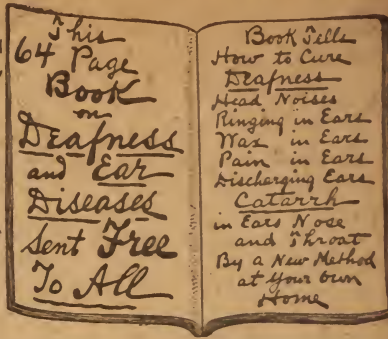 This
64 Page
Book
on
Deafness
and Ear
Diseases
Sent Free
To All
Book Tells
How to Cure
Deafness
Head Noises
Ringing in Ears
Wax in Ears
Pain in Ears
Discharging Ears
Catarrh
in Ears Nose
and Throat
By a New Method
at Your own
Home